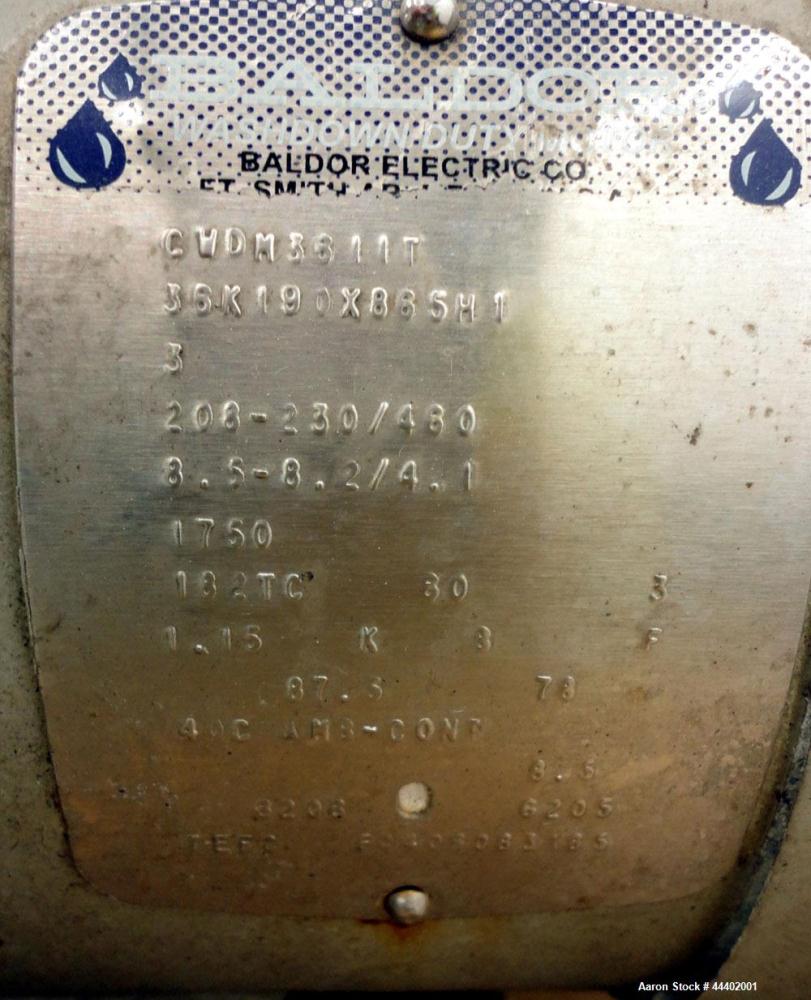 BALDOR
WASHDOWN DUTY
BALDOR ELECTRIC CO
FT. SMITH
CWDM3611T
36K190X865H1
3
208-230/460
8.5-8.2/4.1
1750
182TC 60 3
1.15 K B F
87.5 78
40C AMB-CONT
8.5
6206 6205
TEFC
Aaron Stock # 44402001